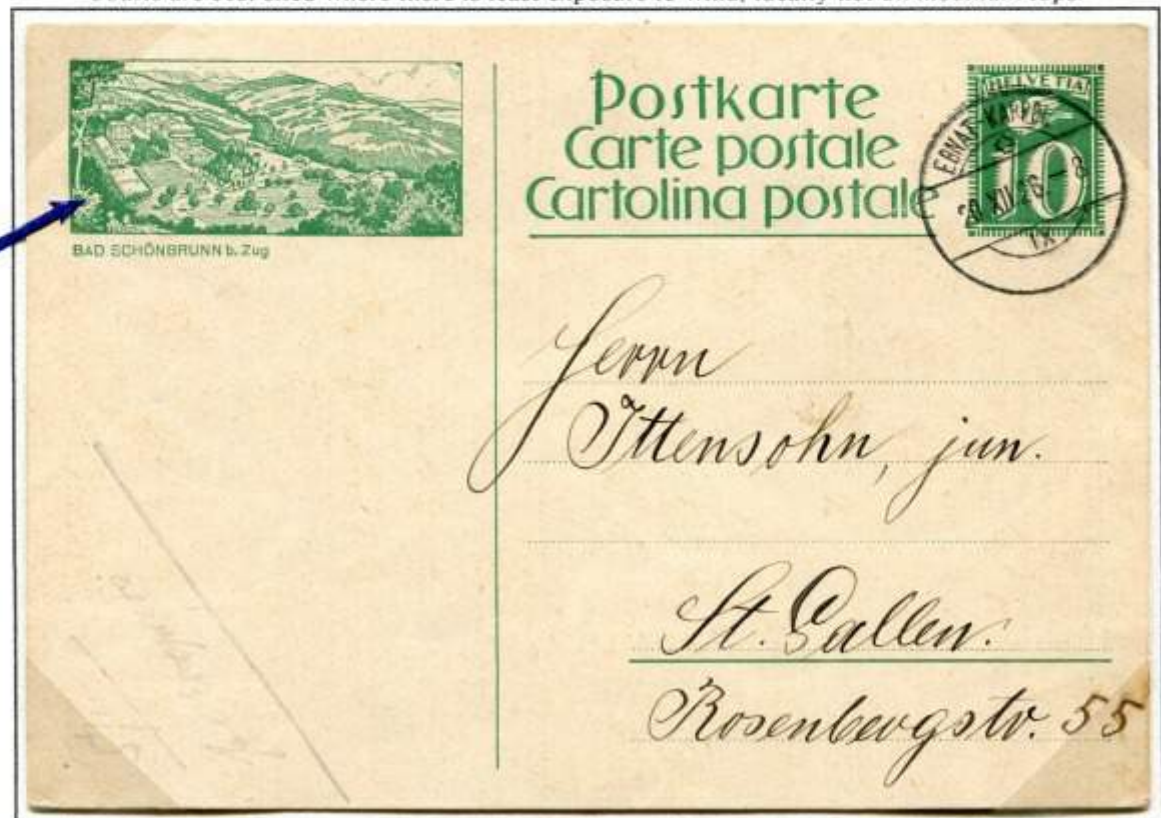 BAD SCHÖNBRUNN b. Zug
Postkarte
Carte postale
Cartolina postale
HELVETIA
10
EBNAT-KAPPEL
20.XII.26.-8
Herrn
Ittensohn, jun.
St. Gallen.
Rosenbergstr. 55